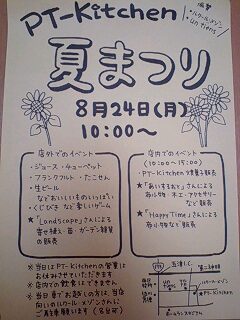 PT-Kitchen
夏まつり
8月24日(月)
10:00〜
店外でのイベント
・ジュース・チューペット
・フランクフルト・たこせん
・生ビール
などおいしいものいっぱい
・くじびきなど楽しいゲーム
★「Landscape」さんによる
寄せ植え・苗・ガーデン雑貨
の販売
店内でのイベント
(10:00〜15:00)
・PT-Kitchenの焼菓子販売
★「あいすまおと」さんによる
布小物・木工・アクセサリー
など販売
★「Happy Time」さんによる
布小物など販売
※当日はPT-Kitchenの営業は
お休みさせていただきます
※店内での飲食はできません
※当日車でお越しの方は、当店
向いのルクール・メゾンさんに
ご駐車願います(6台可)
ルクール・メゾン
PT-Kitchen